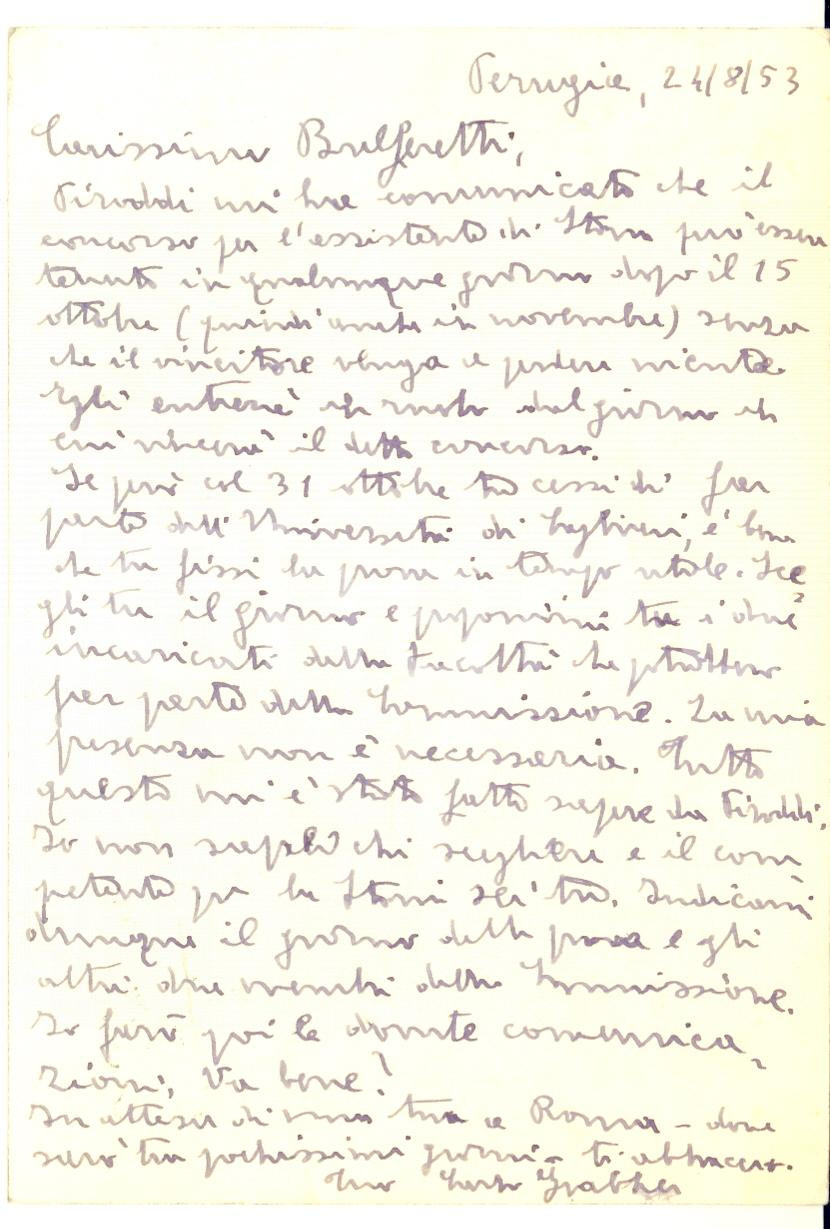 Perugia, 24/8/53
Carissimo Bulferetti,
Piroddi mi ha comunicato che il
concorso per l'assistente di Storia può esser
tenuto in qualunque giorno dopo il 15
ottobre (quindi anche in novembre) senza
che il vincitore venga a perdere niente.
Egli entrerà in ruolo dal giorno in
cui vincerà il detto concorso.
Se però col 31 ottobre tu cessi di far
parte dell'Università di Cagliari, è bene
che tu fissi la prova in tempo utile. Sce
gli tu il giorno e proponimi tu i due
incaricati della Facoltà che potrebbero
far parte della Commissione. La mia
presenza non è necessaria. Tutto
questo mi è stato fatto sapere da Piroddi.
Io non saprei chi scegliere e il com
petente per la Storia sei tu. Indicami
dunque il giorno della prova e gli
altri due membri della Commissione.
Io farò poi le dovute comunica-
zioni. Va bene?
In attesa di una tua a Roma - dove
sarò tra pochissimi giorni - ti abbraccio.
Tuo Carlo Grabher